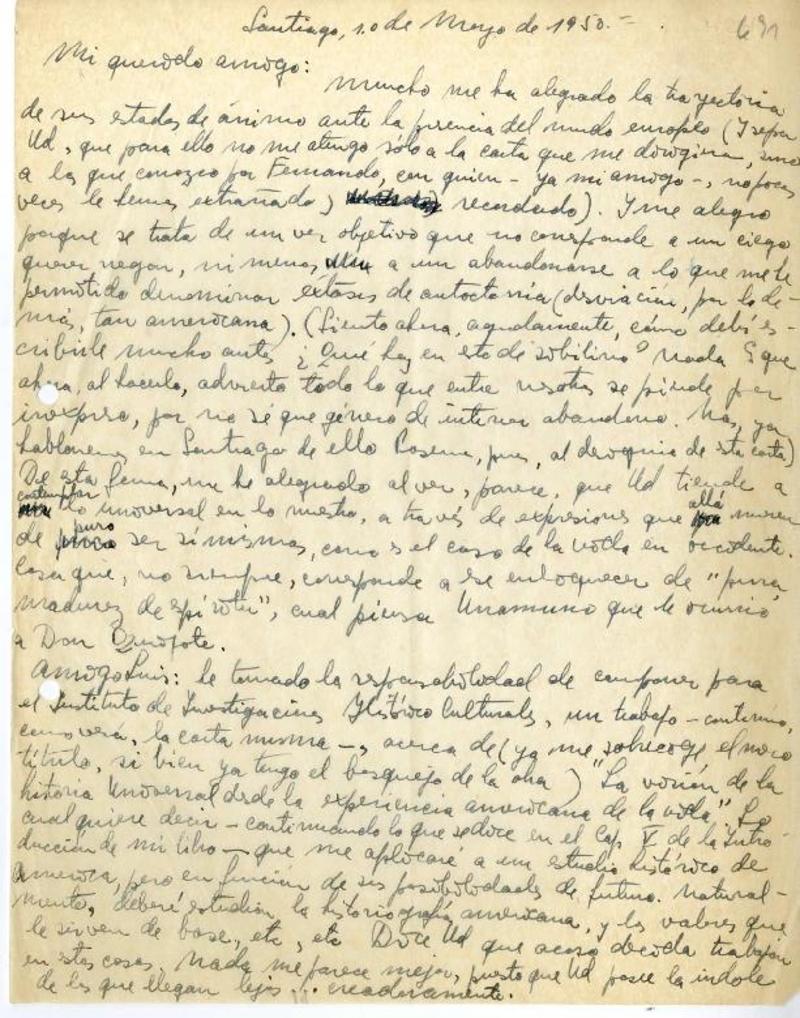 Santiago, 10 de Mayo de 1950.-
691
Mi querido amigo:
Mucho me ha alegrado la trayectoria
de sus estados de ánimo ante la presencia del mundo europeo (Y sepa
Ud, que para ello no me atengo sólo a la carta que me dirigiera, sino
a las que conozco por Fernando, con quien - ya mi amigo -, no pocas
veces le hemos extrañado y recordado). Y me alegro
porque se trata de un ver objetivo que no corresponde a un ciego
querer negar, ni menos a un abandonarse a lo que me he
permitido denominar éxtasis de autoctonía (desviación, por lo de-
más, tan americana). (Siento ahora, agudamente, cómo debí es-
cribirle mucho antes ¿Qué hay en esto de sibilino? Nada. Es que
ahora, al hacerlo, advierto todo lo que entre nosotros se pierde por
inexpreso, por no sé que género de interior abandono. Mas, ya
hablaremos en Santiago de ello. Poseemos, pues, al de esta carta)
De esta forma, me he alegrado al ver, parece, que Ud tiende a
contemplar lo universal en lo nuestro, a través de expresiones que allá mueren
de puro ser sí mismas, como es el caso de la vida en occidente.
Cosa que, no siempre, corresponde a ese enloquecer de "pura
madurez de espíritu", cual piensa Unamuno que le ocurrió
a Don Quijote.
Amigo Luis: he tomado la responsabilidad de componer para
el Instituto de Investigaciones Histórico Culturales, un trabajo - continúo,
como verá, la carta misma -, acerca de (ya me sobrecoge el mero
título, si bien ya tengo el bosquejo de la obra) "La visión de la
historia Universal desde la experiencia americana de la vida". Lo
cual quiere decir - continuando lo que se dice en el Cap V de la Intro-
ducción de mi libro - que me aplicaré a un estudio histórico de
America, pero en función de sus posibilidades de futuro. Natural-
mente, deberé estudiar la historiografía americana, y los valores que
le sirven de base, etc, etc Dice Ud que acaso decida trabajar
en estas cosas. Nada me parece mejor, puesto que Ud posee la índole
de los que llegan lejos... creadoramente.